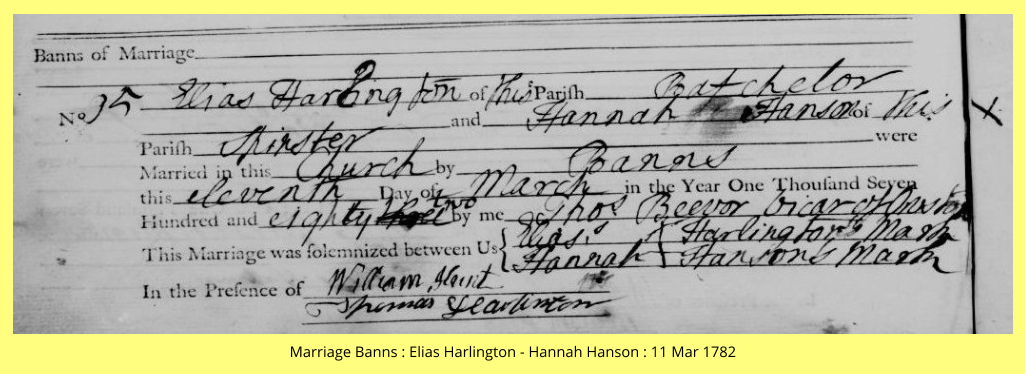 Banns of Marriage
No 95 Elias Harlington of this Parish Batchelor
and Hannah Hanson of this
Parish Spinster were
Married in this Church by Banns
this eleventh Day of March in the Year One Thousand Seven
Hundred and eighty two by me Thos Beevor Vicar of
This Marriage was solemnized between Us Elias Harlington's Mark
Hannah Hanson's Mark
In the Presence of William
Thomas
Marriage Banns : Elias Harlington - Hannah Hanson : 11 Mar 1782